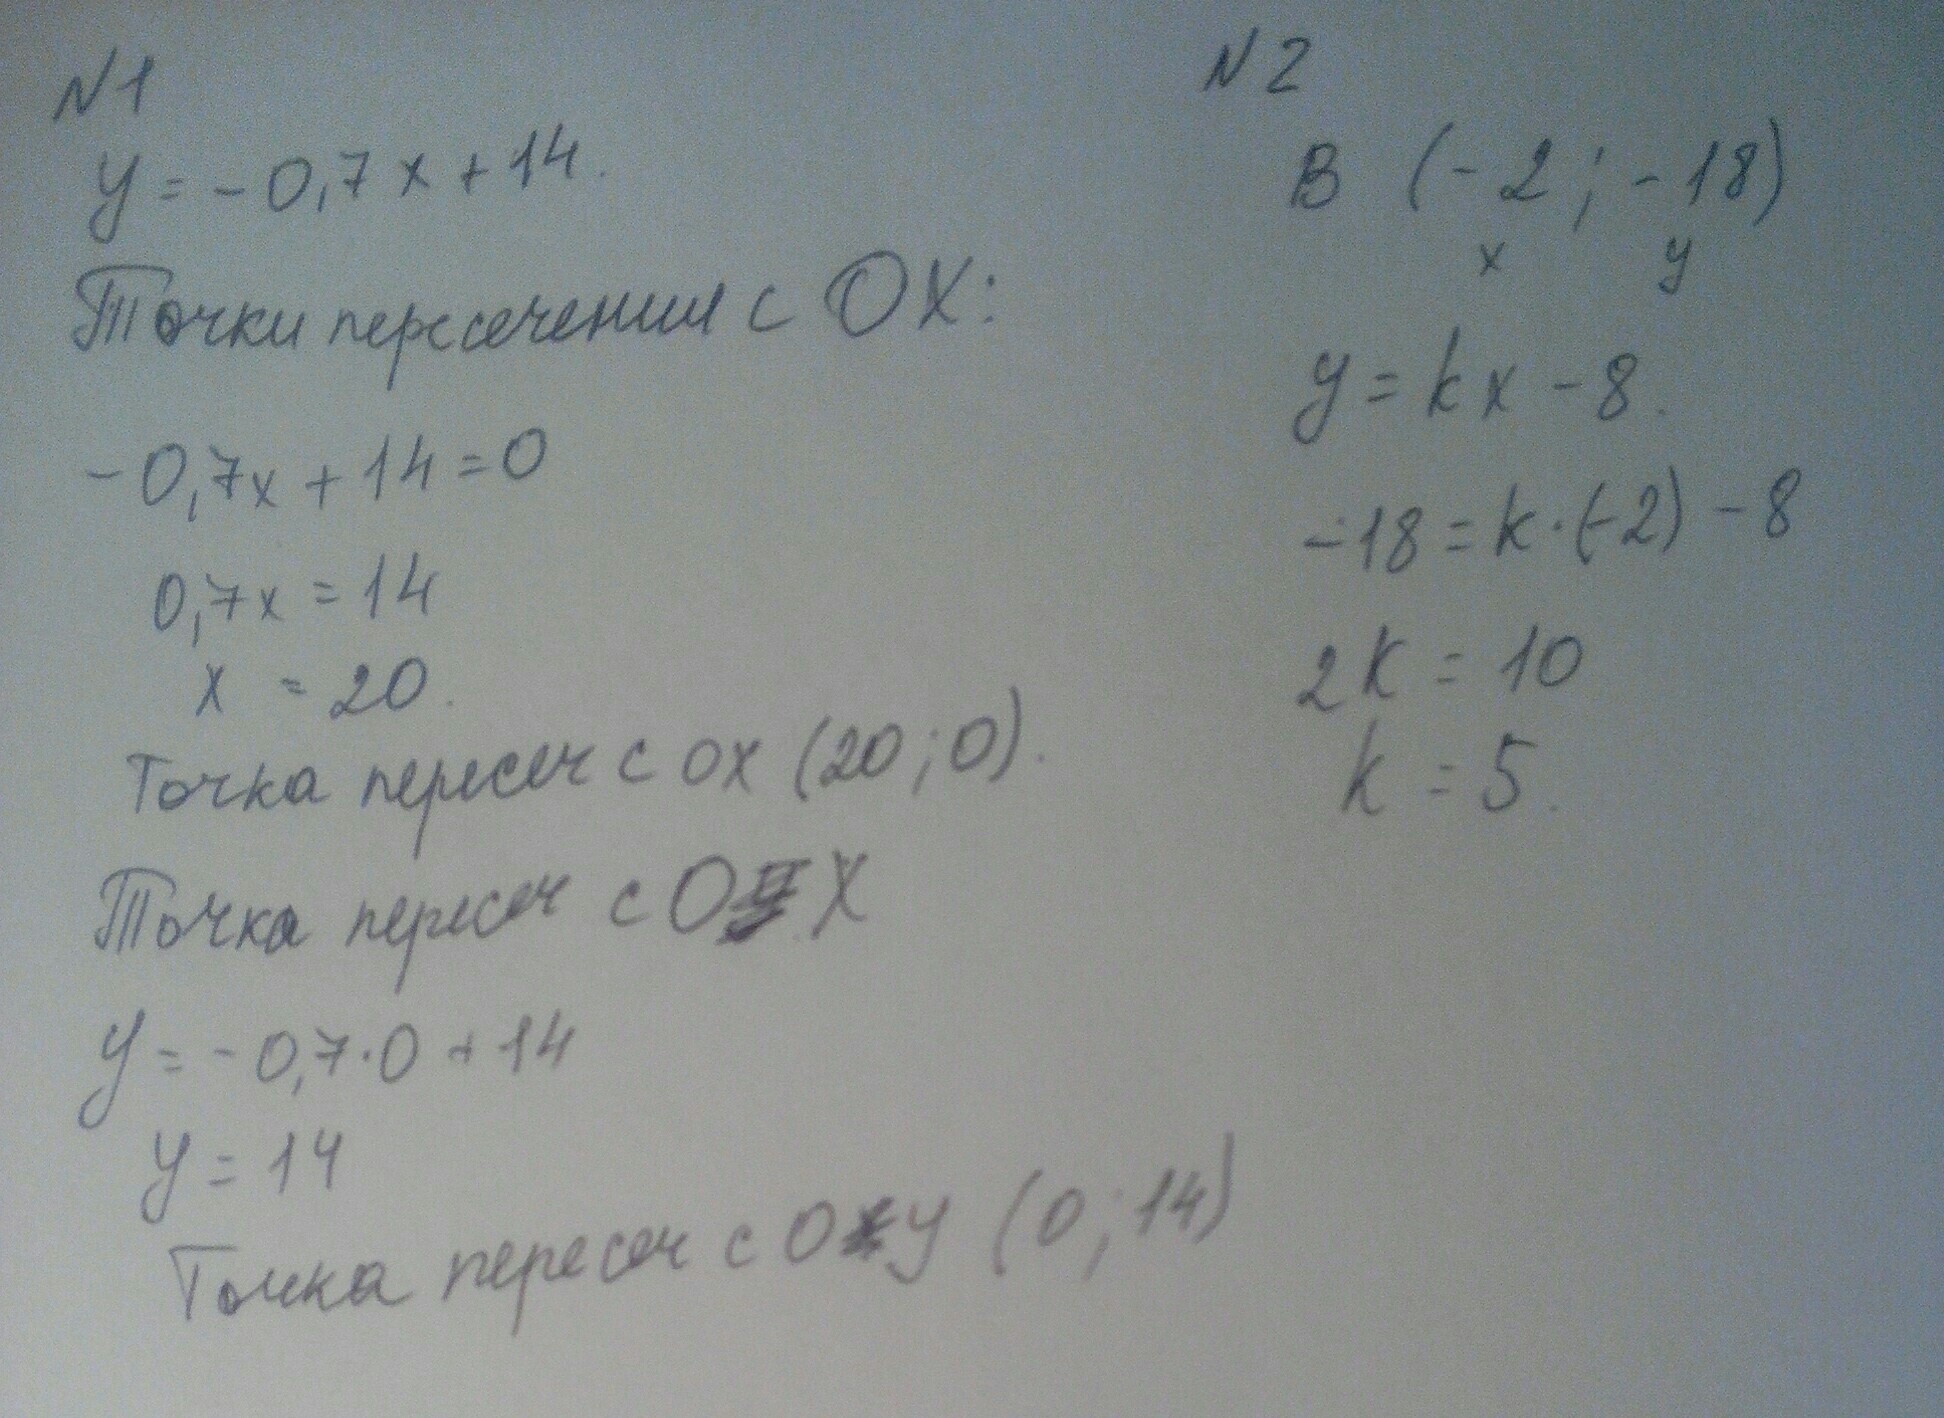 N1
y = -0,7x + 14.
Точки пересечения с OX:
-0,7x + 14 = 0
0,7x = 14
x = 20.
Точка пересеч с ox (20; 0).
Точка пересеч с O X
y = -0,7·0 + 14
y = 14
Точка пересеч с Oy (0; 14)
N2
B (-2; -18)
x y
y = kx - 8.
-18 = k·(-2) - 8
2k = 10
k = 5.